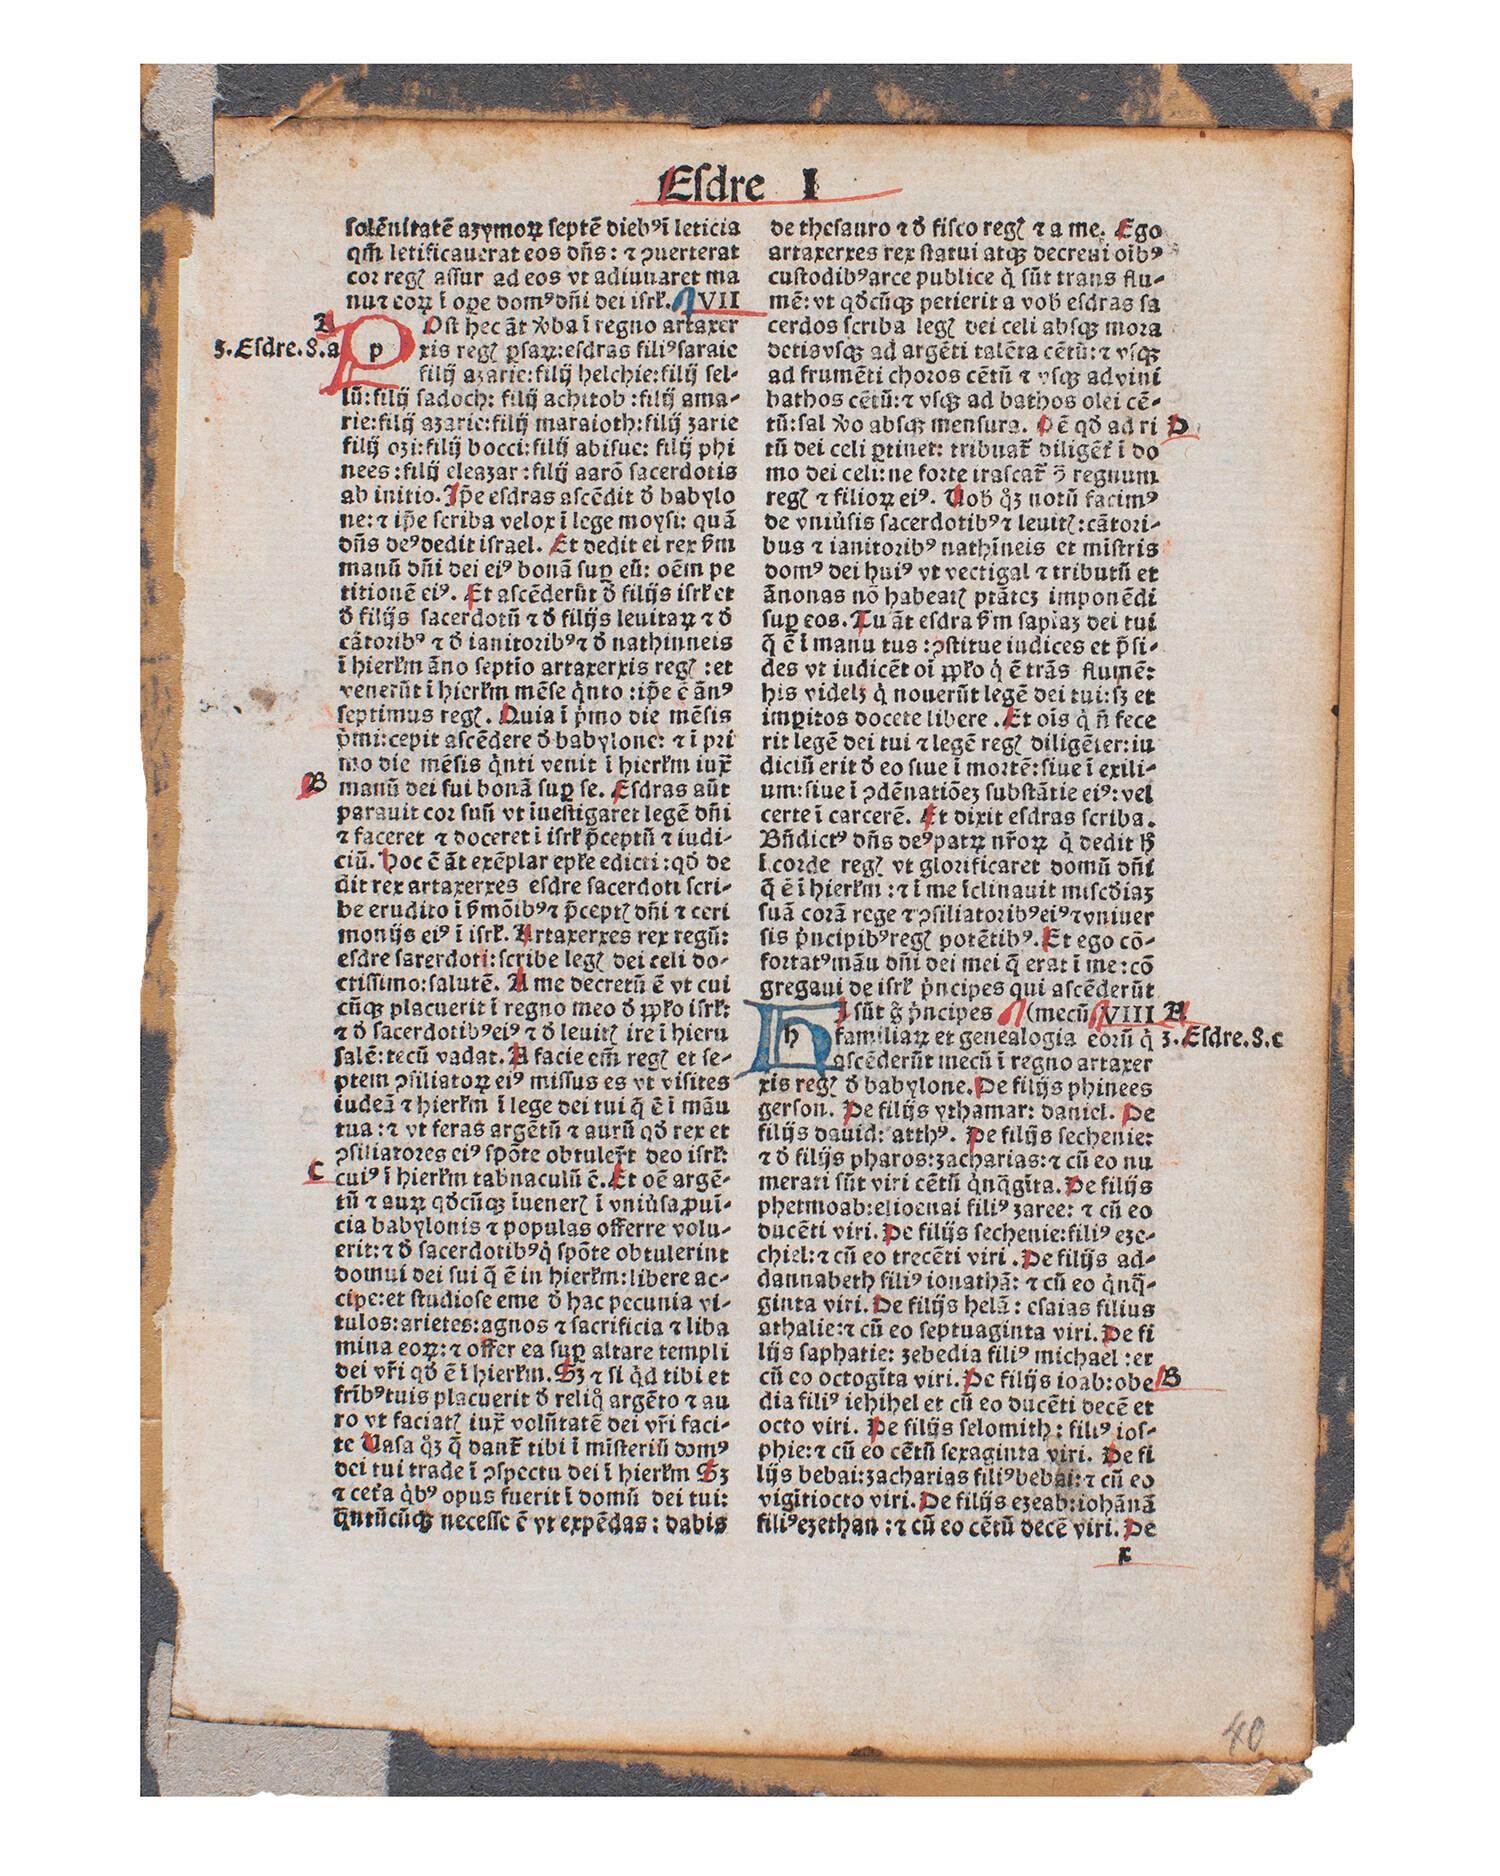 Eſdre I
ſolēnitatē azymoꝝ ſeptē dieb⁹ ī leticia
qm̄ letificauerat eos dn̄s: ⁊ ꝯuerterat
cor regꝭ aſſur ad eos vt adiuuaret ma
nus eoꝝ ī oꝑe dom⁹ dn̄i dei iſrl̓. VII
A
3.Eſdre.8.a
p
Oſt hec āt v̓ba ī regno artaxer
xis regꝭ ꝑſaꝝ: eſdras fili⁹ ſaraie
filij azarie: filij helchie: filij ſel-
lū: filij ſadoch: filij achitob : filij ama-
rie: filij azarie: filij maraioth: filij zarie
filij ozi: filij bocci: filij abiſue: filij phi
nees : filij eleazar : filij aarō ſacerdotis
ab initio. Ip̄e eſdras aſcēdit đ babylo
ne: ⁊ ip̄e ſcriba velox ī lege moyſi: quā
dn̄s de⁹ dedit iſrael. Et dedit ei rex ẜm
manū dn̄i dei ei⁹ bonā ſuꝑ eū: oēm pe
titionē ei⁹. Et aſcēderūt đ filijs iſrl̓ et
đ filijs ſacerdotū ⁊ đ filijs leuitaꝝ ⁊ đ
cātorib⁹ ⁊ đ ianitorib⁹ ⁊ đ nathinneis
ī hierl̓m āno ſeptīo artaxerxis regꝭ : et
venerūt ī hierl̓m mēſe q̇nto : ip̄e ē ān⁹
ſeptimus regꝭ. Quia ī p̓mo die mēſis
p̓mi: cepit aſcēdere đ babylone: ⁊ ī pri
mo die mēſis q̇nti venit ī hierl̓m iux̄
B
manū dei ſui bonā ſuꝑ ſe. Eſdras aūt
parauit cor ſuū vt īueſtigaret legē dn̄i
⁊ faceret ⁊ doceret ī iſrl̓ p̄ceptū ⁊ iudi-
ciū. Hoc ē āt exēplar epl̓e edicti : qđ de
dit rex artaxerxes eſdre ſacerdoti ſcri-
be erudito ī ẜmōib⁹ ⁊ p̄ceptꝭ dn̄i ⁊ ceri
monijs ei⁹ ī iſrl̓. Artaxerxes rex regū:
eſdre ſacerdoti: ſcribe legꝭ dei celi do-
ctiſſimo: ſalutē. A me decretū ē vt cui
cūqꝫ placuerit ī regno meo đ ꝓpl̓o iſrl̓:
⁊ đ ſacerdotib⁹ ei⁹ ⁊ đ leuitꝭ ire ī hieru
ſalē: tecū vadat. A facie em̄ regꝭ et ſe-
ptem ꝯſiliatoꝝ ei⁹ miſſus es vt viſites
iudeā ⁊ hierl̓m ī lege dei tui q̄ ē ī māu
tua : ⁊ vt feras argētū ⁊ aurū qđ rex et
ꝯſiliatores ei⁹ ſpōte obtuler̄t deo iſrl̓:
C
cui⁹ ī hierl̓m tabnaculū ē. Et oē argē-
tū ⁊ auꝝ qđcūqꝫ īuenerꝭ ī vniu̓ſa ꝓuī-
cia babylonis ⁊ populas offerre volu-
erit: ⁊ đ ſacerdotib⁹ q̇ ſpōte obtulerint
domui dei ſui q̄ ē in hierl̓m: libere ac-
cipe: et ſtudioſe eme đ hac pecunia vi-
tulos: arietes: agnos ⁊ ſacrificia ⁊ liba
mina eoꝝ: ⁊ offer ea ſuꝑ altare templi
dei vr̄i qđ ē ī hierl̓m. Sꝫ ⁊ ſi q̇d tibi et
fr̄ib⁹ tuis placuerit đ reliq̇ argēto ⁊ au
ro vt faciatꝭ iux̄ volūtatē dei vr̄i faci-
te Uaſa q̊ꝫ q̄ dant̄ tibi ī miſteriū dom⁹
dei tui trade ī ꝯſpectu dei ī hierl̓m Sꝫ
⁊ cet̓a q̇b⁹ opus fuerit ī domū dei tui:
q̄ntūcūqꝫ neceſſe ē vt expēdas : dabis
de theſauro ⁊ đ fiſco regꝭ ⁊ a me. Ego
artaxerxes rex ſtatui atqꝫ decreui oīb⁹
cuſtodib⁹ arce publice q̇ ſūt trans flu-
mē: vt qđcūqꝫ petierit a vob̓ eſdras ſa
cerdos ſcriba legꝭ dei celi abſqꝫ mora
detis vſqꝫ ad argēti talēta cētū: ⁊ vſqꝫ
ad frumēti choros cētū ⁊ vſqꝫ ad vini
bathos cētū: ⁊ vſqꝫ ad bathos olei cē-
tū: ſal v̓o abſqꝫ menſura. Oē qđ ad ri
D
tū dei celi ꝑtinet: tribuat̄ diligēt̓ ī do
mo dei celi: ne forte iraſcat̄ ꝯ̄ regnum
regꝭ ⁊ filioꝝ ei⁹. Uob̓ q̊ꝫ notū facim⁹
de vniu̓ſis ſacerdotib⁹ ⁊ leuitꝭ: cātori-
bus ⁊ ianitorib⁹ nathīneis et miſtris
dom⁹ dei hui⁹ vt vectigal ⁊ tributū et
ānonas nō habeatꝭ ptātēz imponēdi
ſuꝑ eos. Tu āt eſdra ẜm ſapiaꝫ dei tui
q̄ ē ī manu tus : ꝯſtitue iudices et p̄ſi-
des vt iudicēt oī ꝓpl̓o q̇ ē trās flumē:
his videlꝫ q̇ nouerūt legē dei tui: ſꝫ et
imꝑitos docete libere . Et oīs q̇ n̄ fece
rit legē dei tui ⁊ legē regꝭ diligēter: iu
diciū erit đ eo ſiue ī mortē: ſiue ī exili-
um: ſiue ī ꝯdēnatiōeꝫ ſubſtātie ei⁹: vel
certe ī carcerē. Et dixit eſdras ſcriba.
Bn̄dict⁹ dn̄s de⁹ patꝝ nr̄oꝝ q̇ dedit h̊
ī corde regꝭ vt glorificaret domū dn̄i
q̄ ē ī hierl̓m : ⁊ ī me īclinauit miſcđiaꝫ
ſuā corā rege ⁊ ꝯſiliatorib⁹ ei⁹ ⁊ vniuer
ſis p̓ncipib⁹ regꝭ potētib⁹. Et ego cō-
fortat⁹ māu dn̄i dei mei q̄ erat ī me: cō
gregaui de iſrl̓ p̓ncipes qui aſcēderūt
h
I ſūt g̊ p̓ncipes (mecū VIII A
familiaꝝ et genealogia eorū q̇
3.Eſdre.8.c
aſcēderūt mecū ī regno artaxer
xis regꝭ đ babylone. De filijs phinees
gerſon. De filijs ythamar: daniel. De
filijs dauid: atth⁹. De filijs ſechenie:
⁊ đ filijs pharos: zacharias: ⁊ cū eo nu
merati ſūt viri cētū q̇nq̄gīta. De filijs
phetmoab: elioenai fili⁹ zaree: ⁊ cū eo
ducēti viri. De filijs ſechenie: fili⁹ eze-
chiel: ⁊ cū eo trecēti viri . De filijs ad-
dannabeth fili⁹ ionathā: ⁊ cū eo q̇nq̄-
ginta viri. De filijs helā : eſaias filius
athalie: ⁊ cū eo ſeptuaginta viri. De fi
lijs ſaphatie: zebedia fili⁹ michael : et
cū eo octogīta viri. De filijs ioab: obe
B
dia fili⁹ iehihel et cū eo ducēti decē et
octo viri. De filijs ſelomith : fili⁹ ioſ-
phie: ⁊ cū eo cētū ſexaginta viri. De fi
lijs bebai: zacharias fili⁹ bebai: ⁊ cū eo
vigītiocto viri. De filijs ezeab: iohānā
fili⁹ ezethan : ⁊ cū eo cētū decē viri. De
x
40